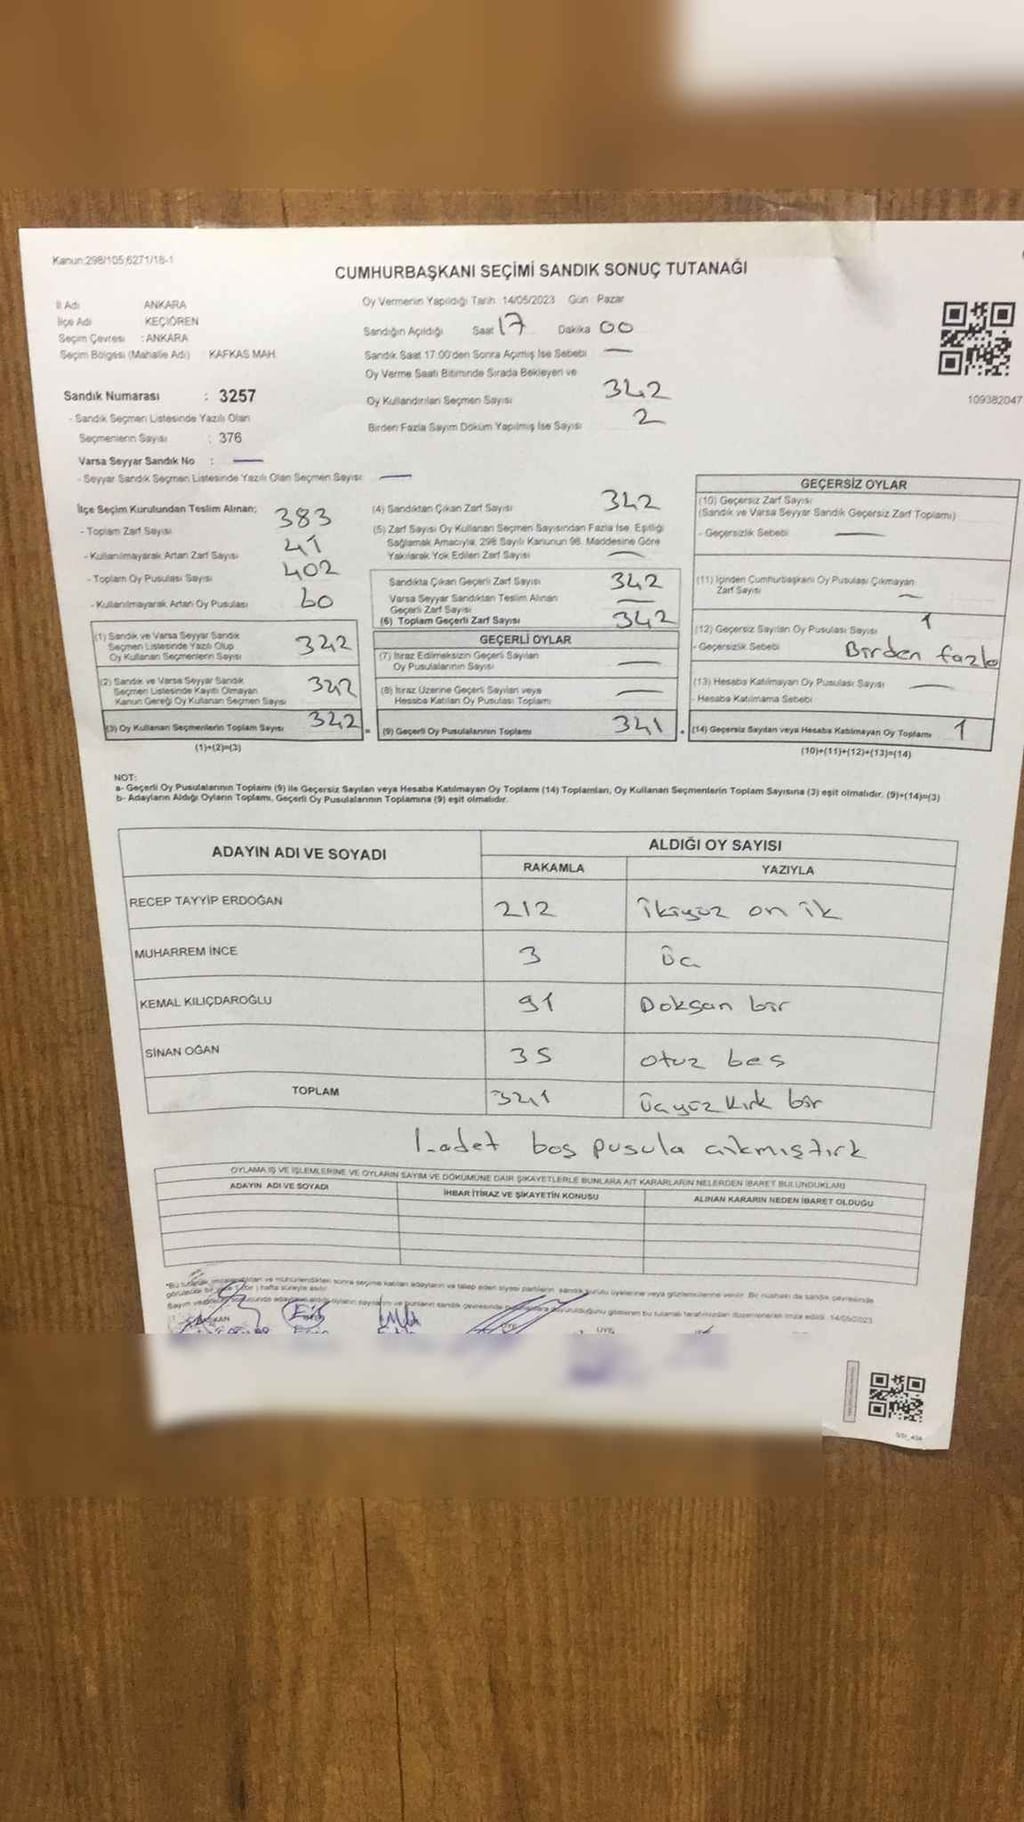 Kanun:298/105;6271/18-1
CUMHURBAŞKANI SEÇİMİ SANDIK SONUÇ TUTANAĞI
İl Adı ANKARA
İlçe Adı KEÇİÖREN
Seçim Çevresi : ANKARA
Seçim Bölgesi (Mahalle Adı) KAFKAS MAH.
Oy Vermenin Yapıldığı Tarih 14/05/2023 Gün Pazar
Sandığın Açıldığı Saat 17 Dakika 00
Sandık Saat 17:00'den Sonra Açılmış İse Sebebi —
Oy Verme Saati Bitiminde Sırada Bekleyen ve
Oy Kullandırılan Seçmen Sayısı 342
Birden Fazla Sayım Döküm Yapılmış İse Sayısı 2
109382047
Sandık Numarası : 3257
- Sandık Seçmen Listesinde Yazılı Olan
Seçmenlerin Sayısı : 376
Varsa Seyyar Sandık No : —
- Seyyar Sandık Seçmen Listesinde Yazılı Olan Seçmen Sayısı —
İlçe Seçim Kurulundan Teslim Alınan;
- Toplam Zarf Sayısı 383
- Kullanılmayarak Artan Zarf Sayısı 41
- Toplam Oy Pusulası Sayısı 402
- Kullanılmayarak Artan Oy Pusulası 60
(1) Sandık ve Varsa Seyyar Sandık
Seçmen Listesinde Yazılı Olup
Oy Kullanan Seçmenlerin Sayısı 342
(2) Sandık ve Varsa Seyyar Sandık
Seçmen Listesinde Kayıtlı Olmayan
Kanun Gereği Oy Kullanan Seçmen Sayısı 342
(3) Oy Kullanan Seçmenlerin Toplam Sayısı 342
(1)+(2)=(3)
(4) Sandıktan Çıkan Zarf Sayısı 342
(5) Zarf Sayısı Oy Kullanan Seçmen Sayısından Fazla İse, Eşitliği
Sağlamak Amacıyla, 298 Sayılı Kanunun 98. Maddesine Göre
Yakılarak Yok Edilen Zarf Sayısı —
Sandıkta Çıkan Geçerli Zarf Sayısı 342
Varsa Seyyar Sandıktan Teslim Alınan
Geçerli Zarf Sayısı —
(6) Toplam Geçerli Zarf Sayısı 342
GEÇERLİ OYLAR
(7) İtiraz Edilmeksizin Geçerli Sayılan
Oy Pusulalarının Sayısı —
(8) İtiraz Üzerine Geçerli Sayılan veya
Hesaba Katılan Oy Pusulası Toplamı —
(9) Geçerli Oy Pusulalarının Toplamı 341
GEÇERSİZ OYLAR
(10) Geçersiz Zarf Sayısı
(Sandık ve Varsa Seyyar Sandık Geçersiz Zarf Toplamı)
- Geçersizlik Sebebi —
(11) İçinden Cumhurbaşkanı Oy Pusulası Çıkmayan
Zarf Sayısı —
(12) Geçersiz Sayılan Oy Pusulası Sayısı 1
- Geçersizlik Sebebi Birden fazla
(13) Hesaba Katılmayan Oy Pusulası Sayısı —
- Hesaba Katılmama Sebebi
(14) Geçersiz Sayılan veya Hesaba Katılmayan Oy Toplamı 1
(10)+(11)+(12)+(13)=(14)
NOT:
a- Geçerli Oy Pusulalarının Toplamı (9) ile Geçersiz Sayılan veya Hesaba Katılmayan Oy Toplamı (14) Toplamları, Oy Kullanan Seçmenlerin Toplam Sayısına (3) eşit olmalıdır. (9)+(14)=(3)
b- Adayların Aldığı Oyların Toplamı, Geçerli Oy Pusulalarının Toplamına (9) eşit olmalıdır.
ADAYIN ADI VE SOYADI
ALDIĞI OY SAYISI
RAKAMLA YAZIYLA
RECEP TAYYİP ERDOĞAN 212 ikiyüz on ik
MUHARREM İNCE 3 üç
KEMAL KILIÇDAROĞLU 91 Doksan bir
SİNAN OĞAN 35 otuz beş
TOPLAM 341 üçyüz kırk bir
1 adet boş pusula çıkmıştırk
OYLAMA İŞ VE İŞLEMLERİNE VE OYLARIN SAYIM VE DÖKÜMÜNE DAİR ŞİKAYETLERLE BUNLARA AİT KARARLARIN NELERDEN İBARET BULUNDUKLARI
ADAYIN ADI VE SOYADI
İHBAR İTİRAZ VE ŞİKAYETİN KONUSU
ALINAN KARARIN NEDEN İBARET OLDUĞU
ÜYE